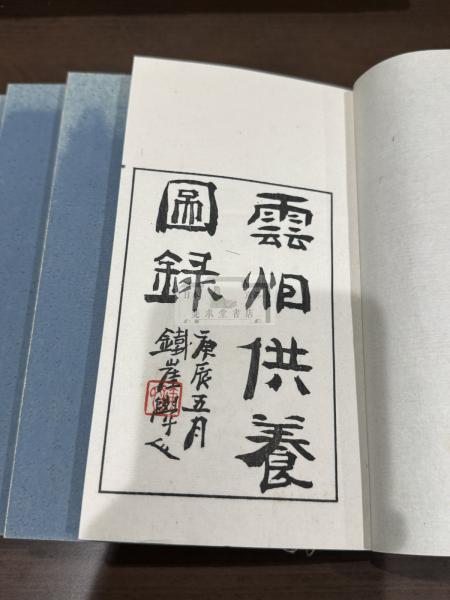 雲烟供養
圖録
庚辰五月
鐵崖
求堂書店